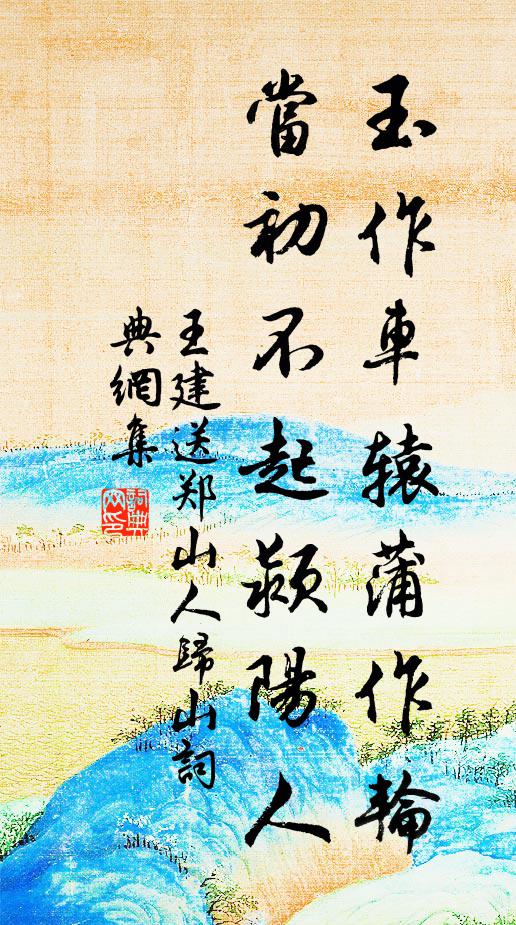 玉作車辕蒲作輪
當初不起颍陽人
王建送郑山人歸山詞
典網集
詞典网印